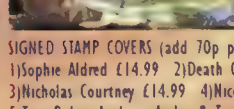 SIGNED STAMP COVERS (add 70p p
1)Sophie Aldred £14.99 2)Death
3)Nicholas Courtney £14.99 4)Nic